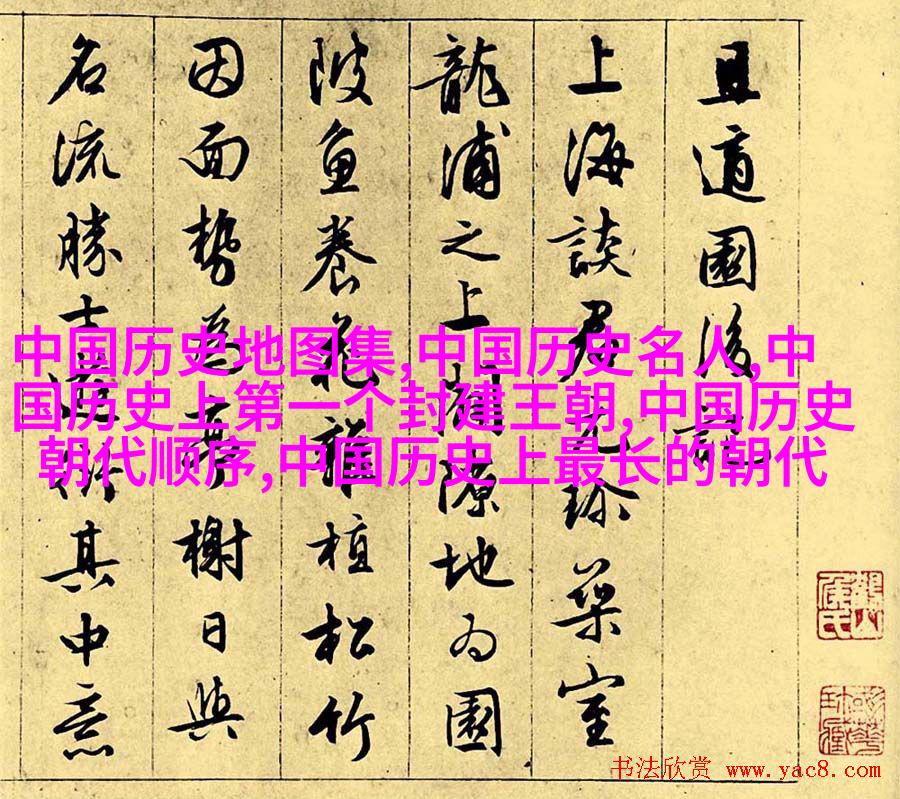 且適園後記
上海談君元珍築室
龍浦之上闢源地為園
陂魚養花雜植松竹
因面勢為亭榭日與
名流勝士遊衍其中意
中国历史地图集,中国历史名人,中
国历史上第一个封建王朝,中国历史
朝代顺序,中国历史上最长的朝代
书法欣赏 www.yac8.com